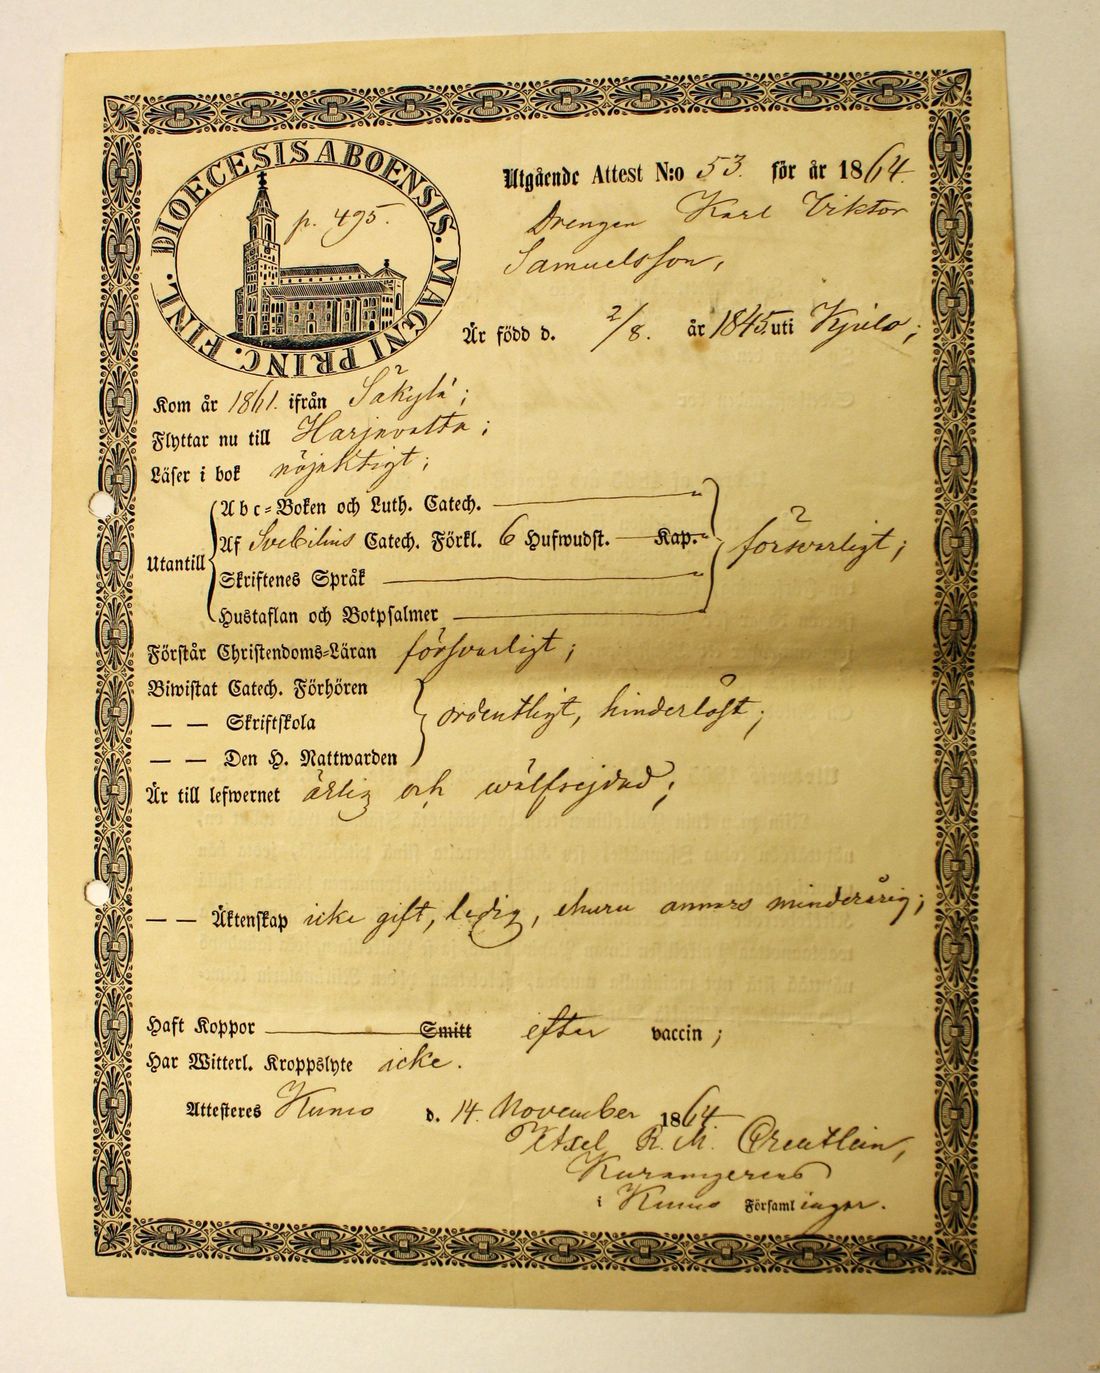 DIOECESIS ABOENSIS. MAGNI PRINC. FINL.
p. 495.
Utgående Attest N:o 53. för år 1864.
Drengen Karl Viktor
Samuelsson,
Är född d. 2/8. år 1845. uti Kjulo;
Kom år 1861. ifrån Säkylä;
Flyttar nu till Harjavalta;
Läser i bok nöjaktigt;
Utantill
Abc=Boken och Luth. Catech. "
Af Svebilius Catech. Förkl. 6 Hufwudst. Kap. "
Skriftenes Språk "
Hustaflan och Botpsalmer "
försvarligt;
Förstår Christendoms=Läran försvarligt;
Biwistat Catech. Förhören
— — Skriftskola
— — Den H. Nattwarden
ordentligt, hinderlöst;
Är till lefwernet ärlig och wälfrejdad;
— — Äktenskap icke gift, ledig, ehuru annars minderårig;
Haft Koppor Smitt efter vaccin;
Har Witterl. Kroppslyte icke.
Attesteres Kumo d. 14. November 1864
Axel R. M.
i Kumo Församlingar.